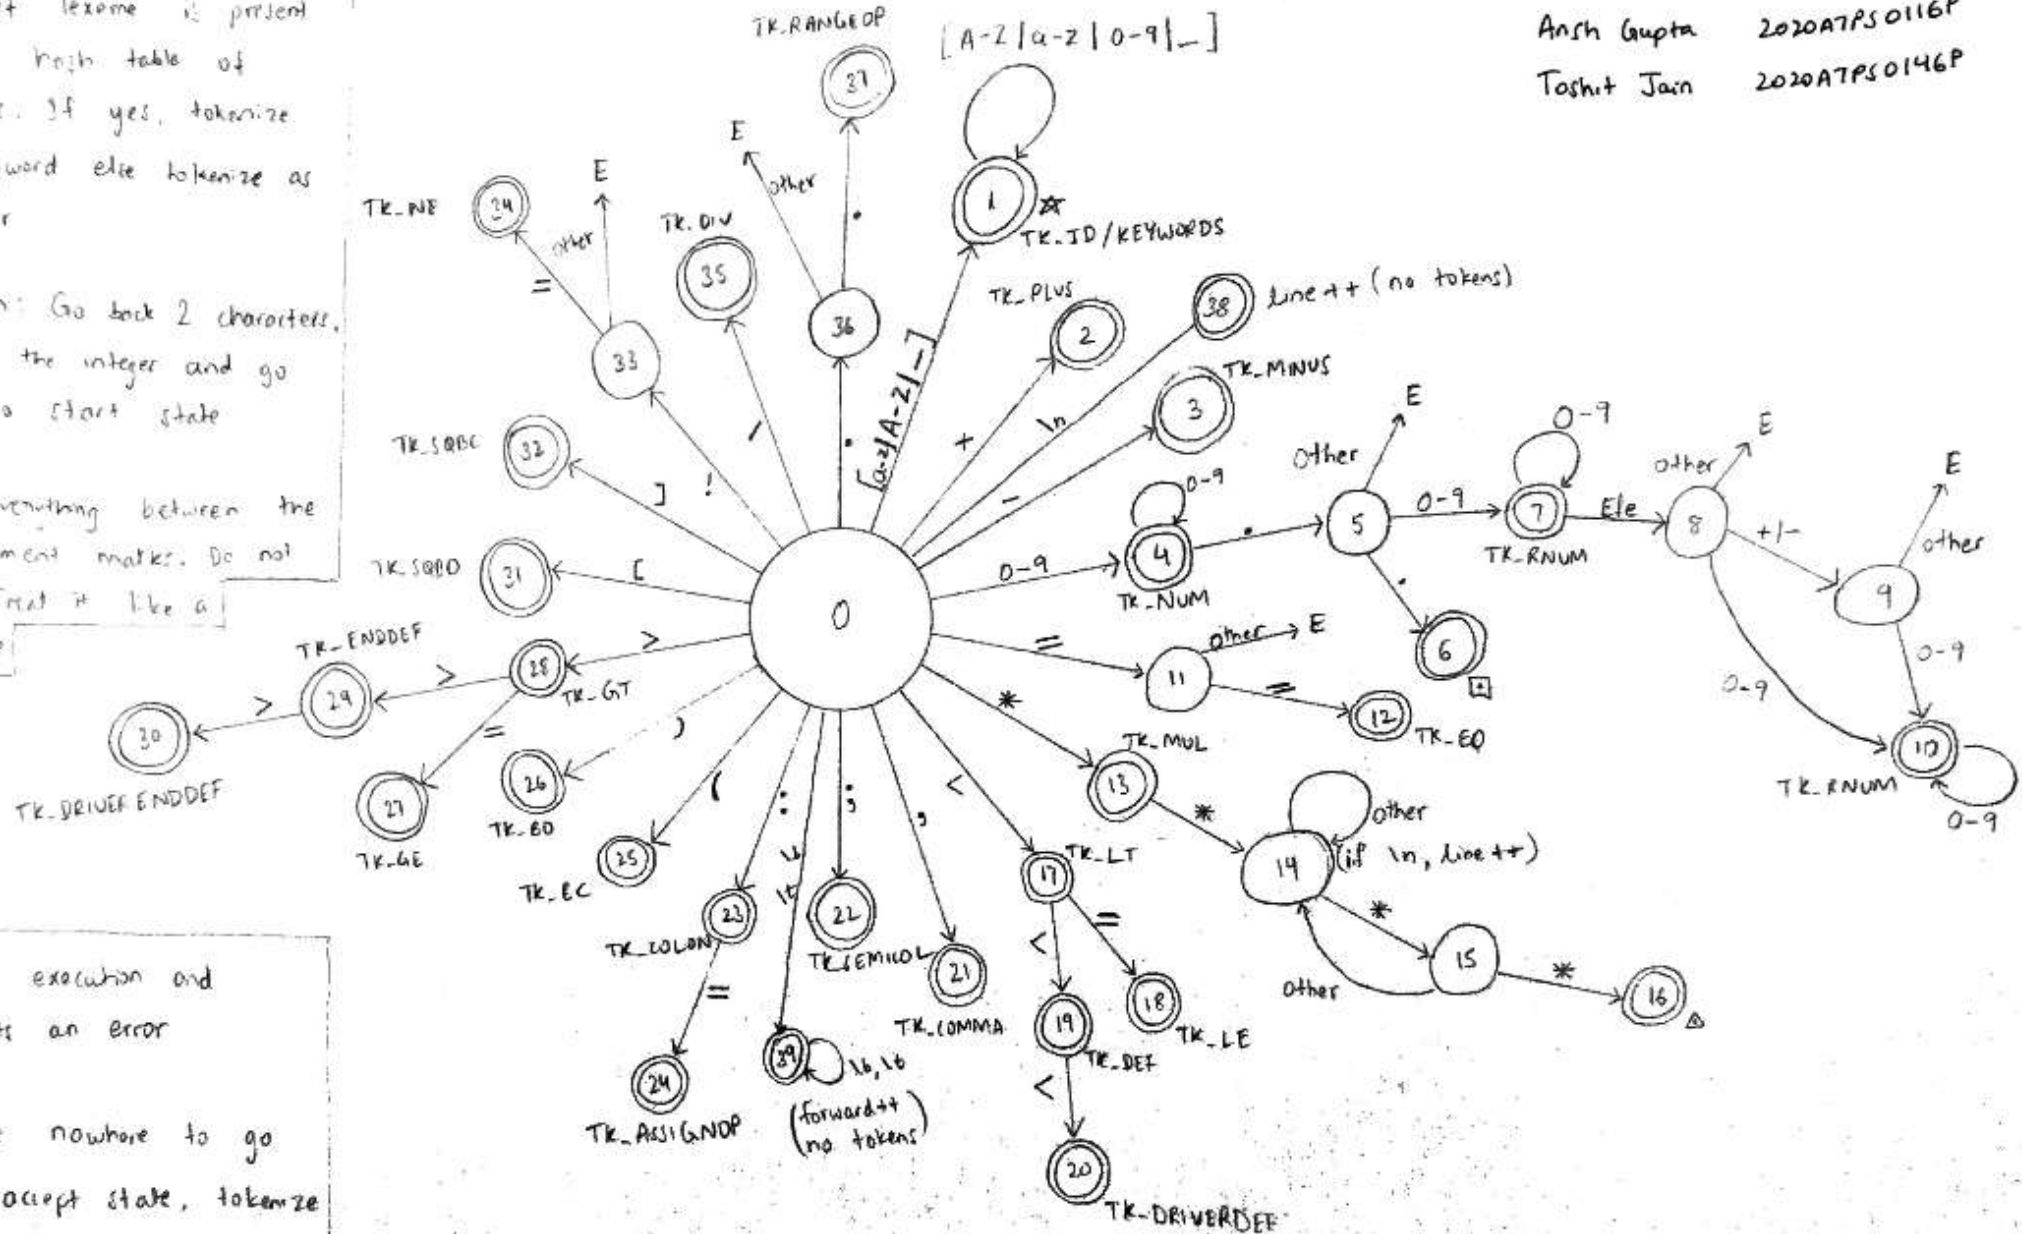 lexeme is present
hash table of
If yes, tokenize
word else tokenize as
Go back 2 characters,
the integer and go
start state
between the
marks. Do not
it like a
execution and
an error
nowhere to go
accept state, tokenize
Ansh Gupta 2020A7PS0116P
Toshit Jain 2020A7PS0146P
TK_RANGEOP
37
[A-Z|a-z|0-9|_]
E
other
.
1
☆
TK_ID/KEYWORDS
TK_NE
34
E
other
=
TK_DIV
35
36
33
TK_PLUS
2
38
line++ (no tokens)
TK_MINUS
3
[a-z|A-Z|_]
+
\n
-
.
/
!
]
[
TK_SQBC
32
TK_SQBO
31
0
0-9
0-9
4
TK_NUM
.
5
other
E
0-9
0-9
7
TK_RNUM
E/e
8
other
E
+/-
9
E
other
0-9
0-9
10
TK_RNUM
0-9
.
6
=
11
other
E
=
12
TK_EQ
TK_ENDDEF
29
>
28
TK_GT
>
>
30
TK_DRIVERENDDEF
=
27
TK_GE
26
TK_BO
)
(
25
TK_BC
:
23
TK_COLON
=
24
TK_ASSIGNOP
\b
\t
39
\b,\t
(forward++
no tokens)
;
22
TK_SEMICOL
,
21
TK_COMMA
<
17
TK_LT
<
=
18
TK_LE
19
TK_DEF
<
20
TK_DRIVERDEF
*
TK_MUL
13
*
14
other
(if \n, line++)
*
15
other
*
16